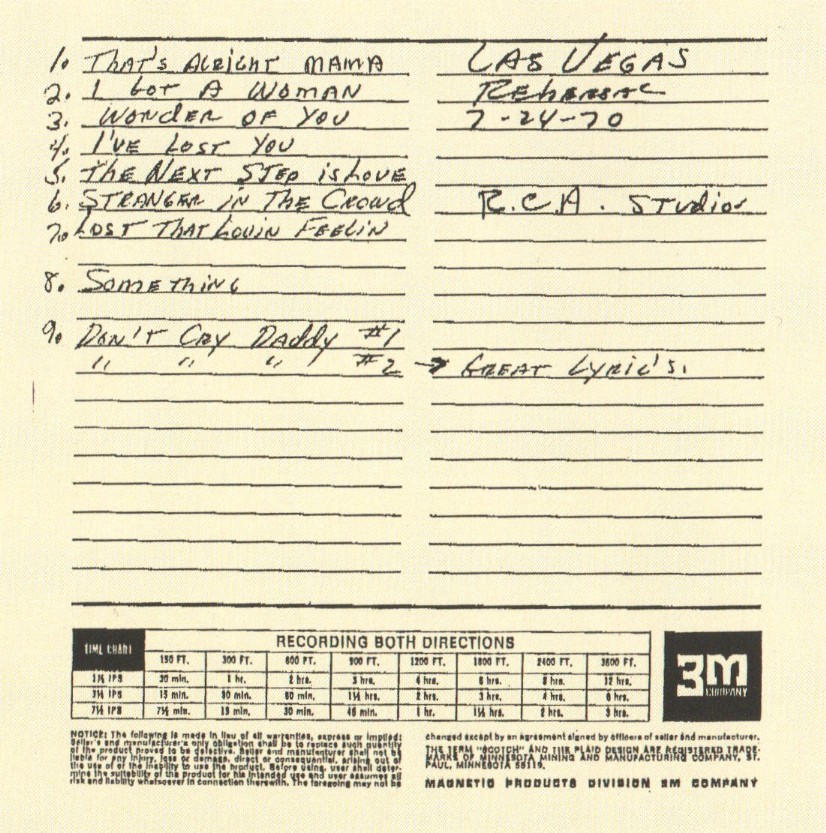 1. THAT'S ALRIGHT MAMA
2. I GOT A WOMAN
3. WONDER OF YOU
4. I'VE LOST YOU
5. THE NEXT STEP is LOVE
6. STRANGER iN THE CROWD
7. LOST THAT LOVIN FEELIN
8. SOMETHING
9. DON'T CRY DADDY #1
" " " #2 → GREAT LYRIC'S.
LAS VEGAS
REHEARSAL
7-24-70
R.C.A. STUDIOS
TIME CHART
RECORDING BOTH DIRECTIONS
150 FT. 300 FT. 600 FT. 900 FT. 1200 FT. 1800 FT. 2400 FT. 3600 FT.
1⅞ IPS 30 min. 1 hr. 2 hrs. 3 hrs. 4 hrs. 6 hrs. 8 hrs. 12 hrs.
3¾ IPS 15 min. 30 min. 60 min. 1½ hrs. 2 hrs. 3 hrs. 4 hrs. 6 hrs.
7½ IPS 7½ min. 15 min. 30 min. 45 min. 1 hr. 1½ hrs. 2 hrs. 3 hrs.
3M
COMPANY
NOTICE: The following is made in lieu of all warranties, express or implied:
Seller's and manufacturer's only obligation shall be to replace such quantity
of the product proved to be defective. Seller and manufacturer shall not be
liable for any injury, loss or damage, direct or consequential, arising out of
the use of or the inability to use the product. Before using, user shall deter-
mine the suitability of the product for his intended use and user assumes all
risk and liability whatsoever in connection therewith. The foregoing may not be
changed except by an agreement signed by officers of seller and manufacturer.
THE TERM "SCOTCH" AND THE PLAID DESIGN ARE REGISTERED TRADE-
MARKS OF MINNESOTA MINING AND MANUFACTURING COMPANY, ST.
PAUL, MINNESOTA 55119.
MAGNETIC PRODUCTS DIVISION 3M COMPANY